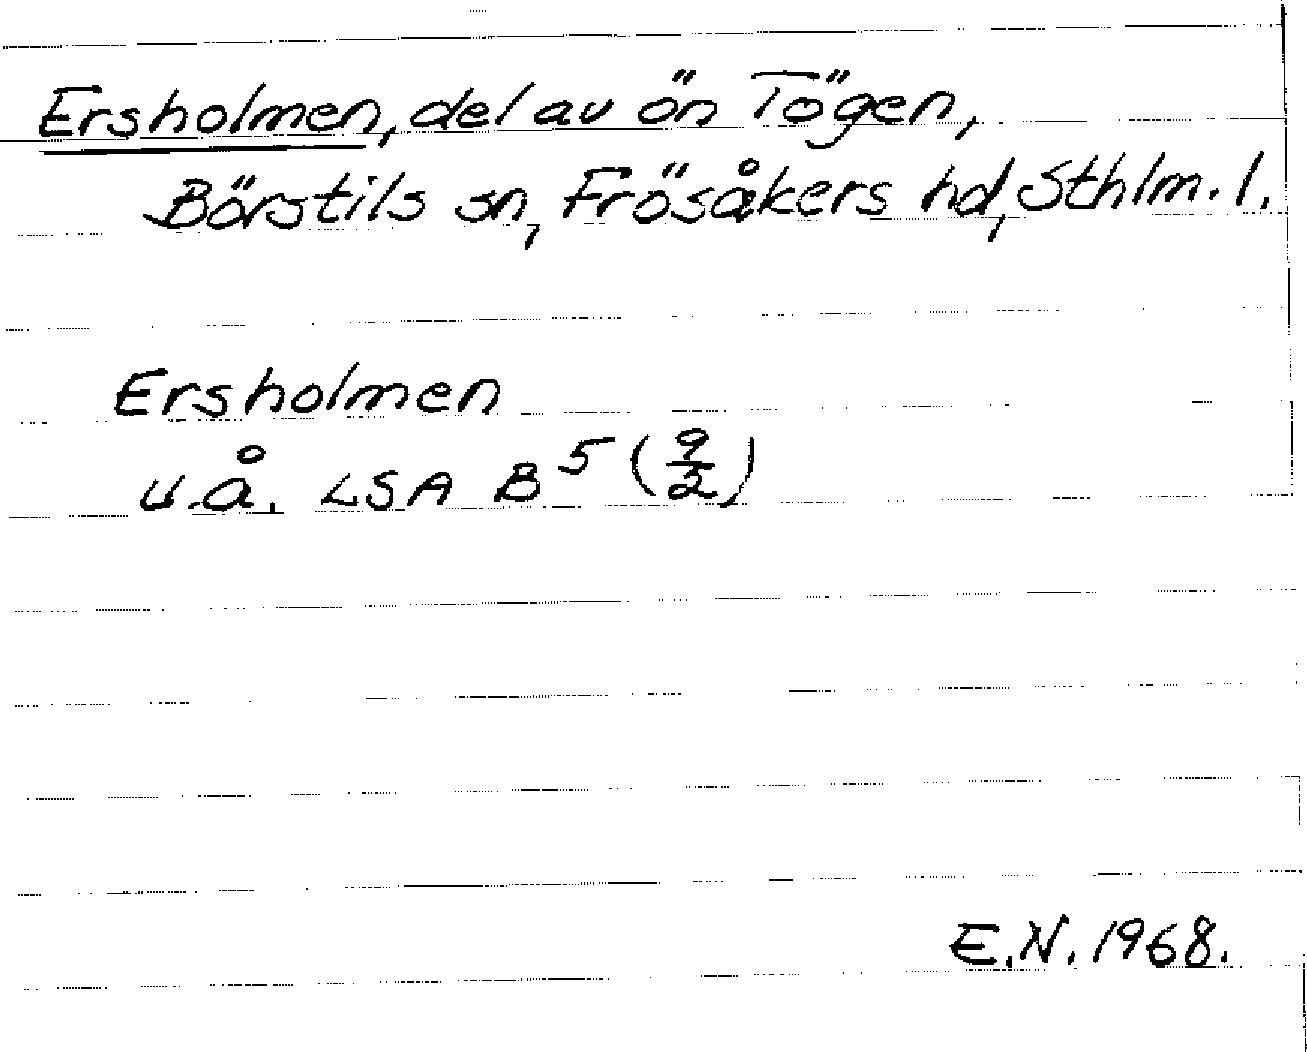 Ersholmen, del av ön Tögen,
Börstils sn, Frösåkers hd, Sthlm. l.
Ersholmen
u.å. LSA B⁵ (9/2)
E.N. 1968.